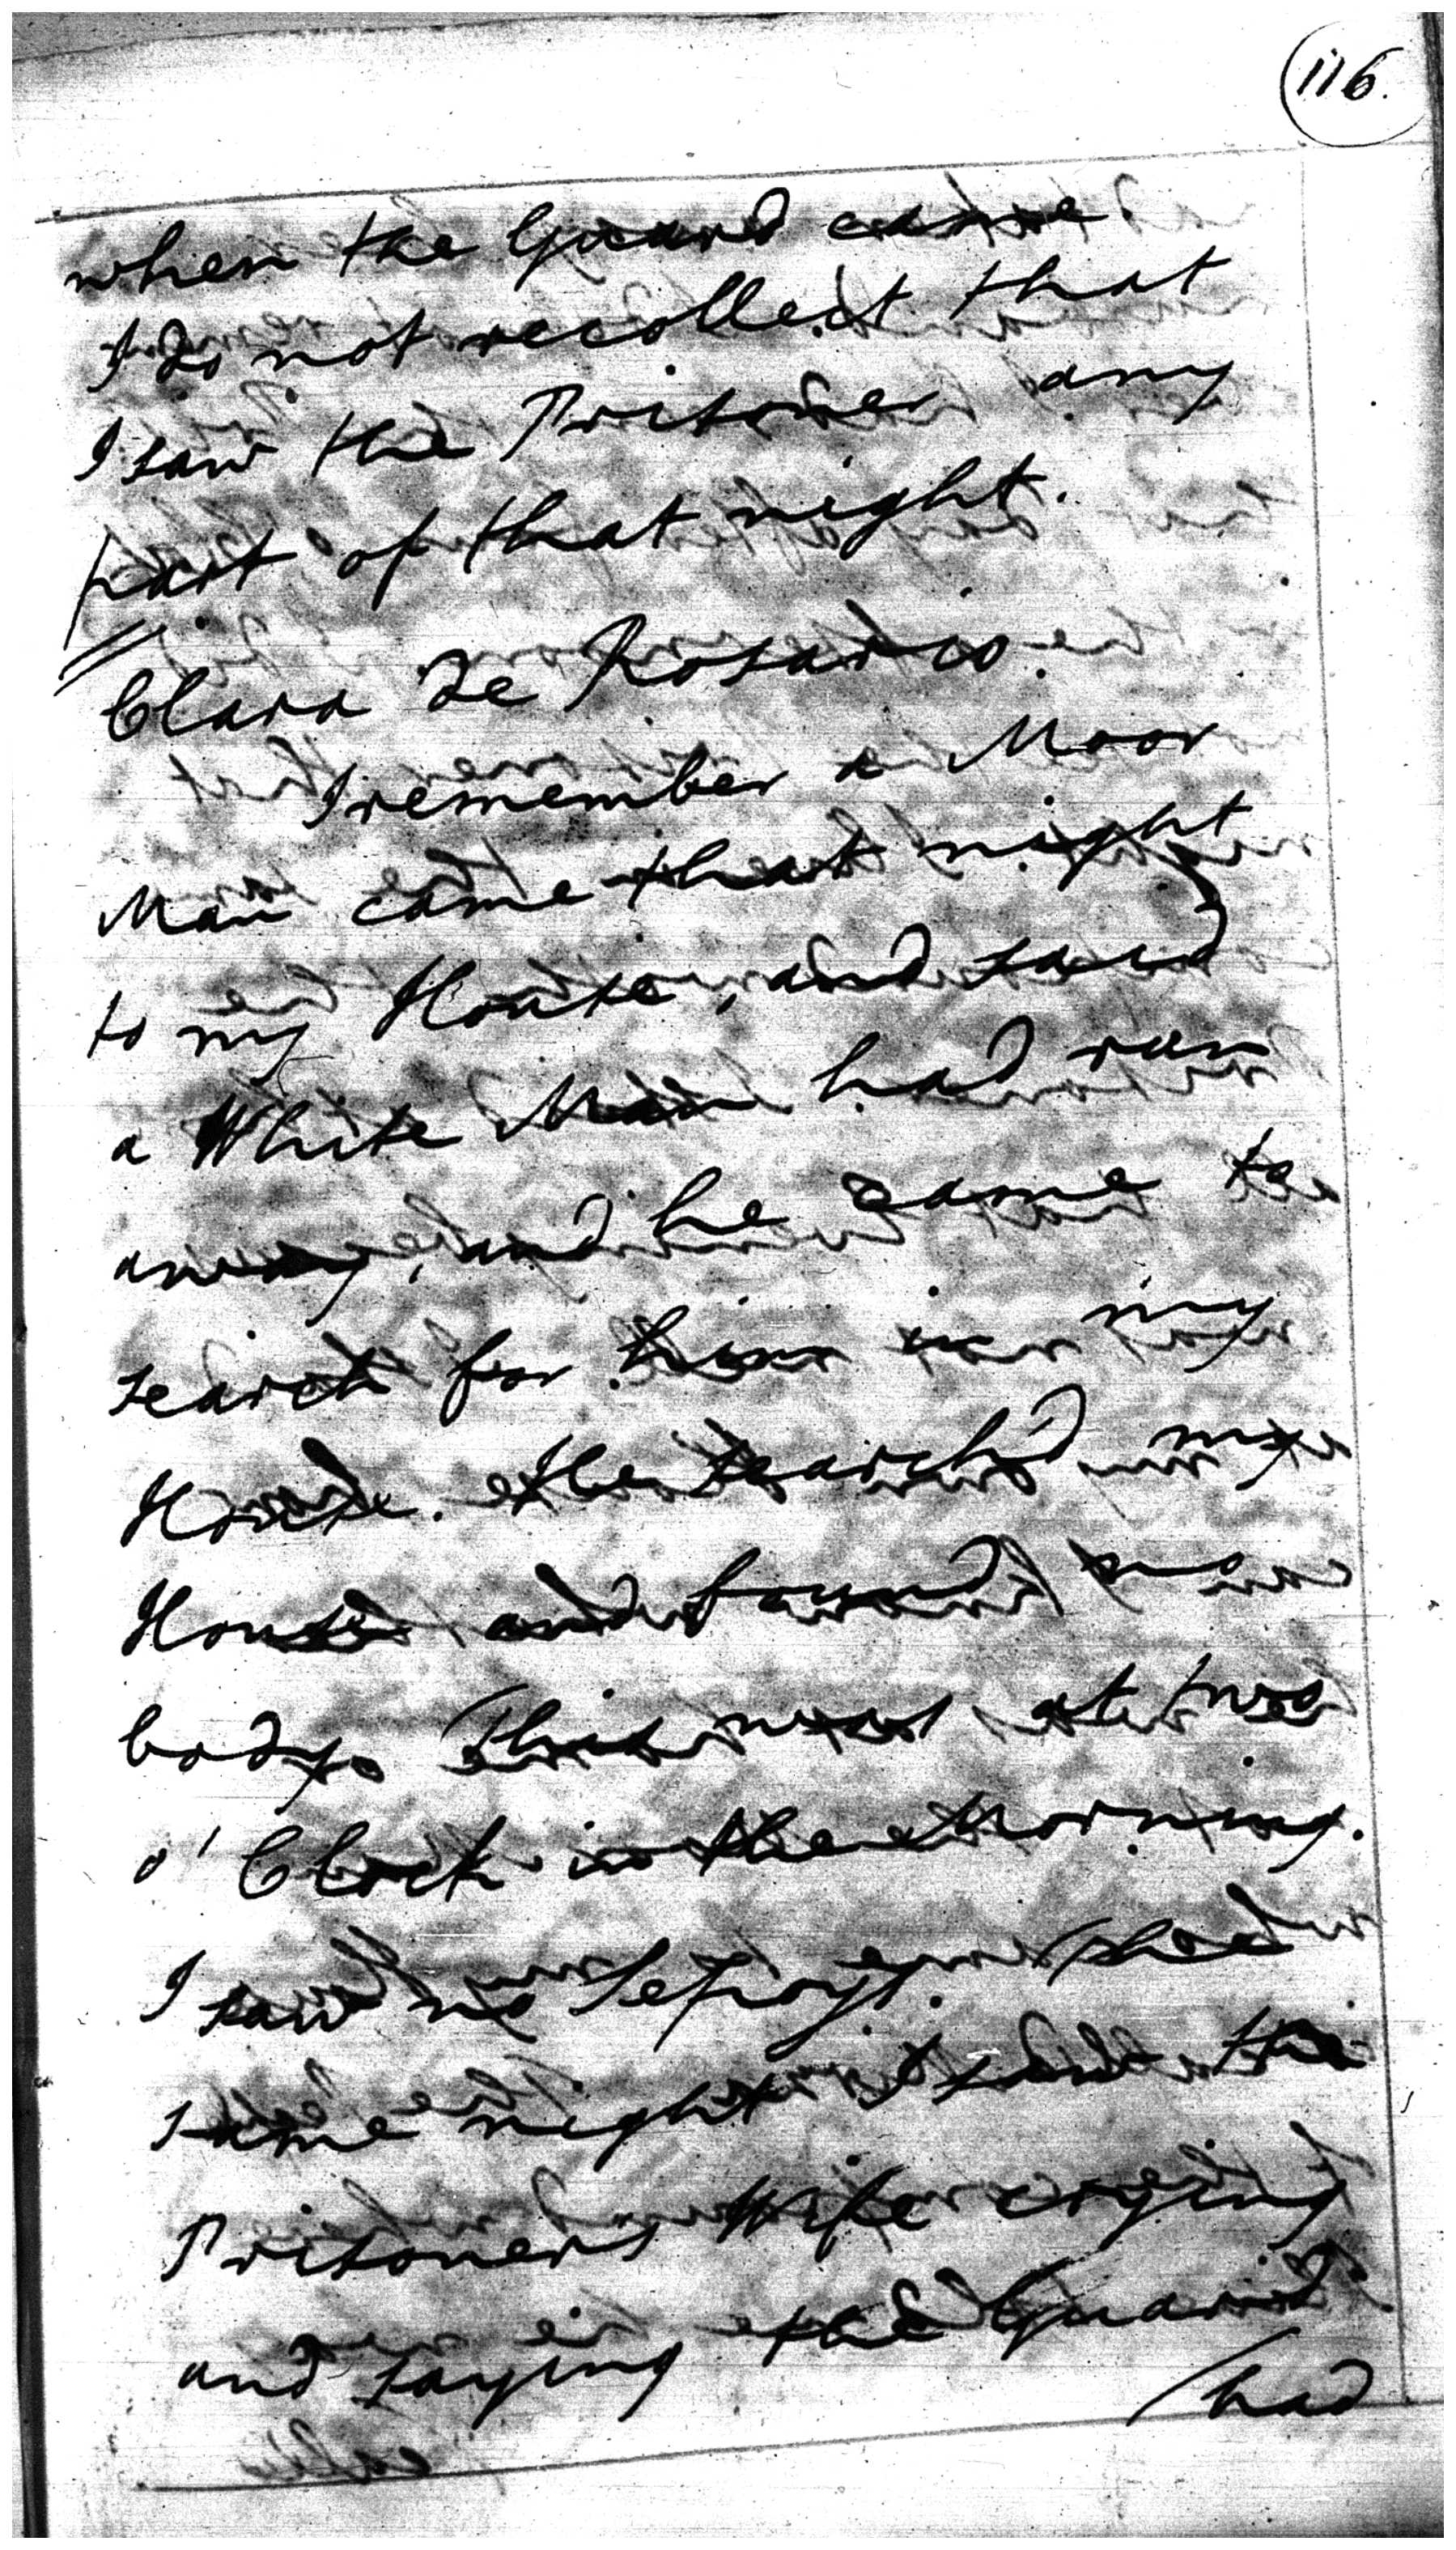 116.
when the Guard came
I do not recollect that
I saw the Prisoner any
part of that night.
Clara De Rosario.
I remember a Moor
Man came that night
to my House, and said
a White Man had ran
away, and he came to
search for him in my
House. He search'd my
House and found no
body. This was at two
o' Clock in the Morning.
I saw no Sepoys. The
same night I saw the
Prisoners Wife crying
and saying the Guard
had